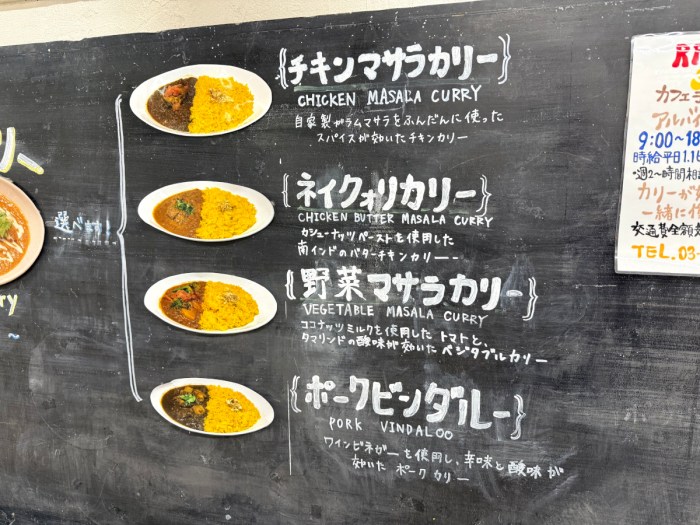 リー
選べます!
rry
{チキンマサラカリー}
CHICKEN MASALA CURRY
自家製ガラムマサラをふんだんに使った
スパイスが効いたチキンカリー
{ネイクォリカリー}
CHICKEN BUTTER MASALA CURRY
カシューナッツペーストを使用した
南インドのバターチキンカリー
{野菜マサラカリー}
VEGETABLE MASALA CURRY
ココナッツミルクを使用した トマトと、
タマリンドの酸味が効いたベジタブルカリー
{ポークビンダルー}
PORK VINDALOO
ワインビネガーを使用し、辛味と酸味が
効いた ポークカリー
カフェ
アルバイ
9:00~18
時給平日1,1
・週2~時間相
カリーが
一緒に
交通費全額
TEL. 03-